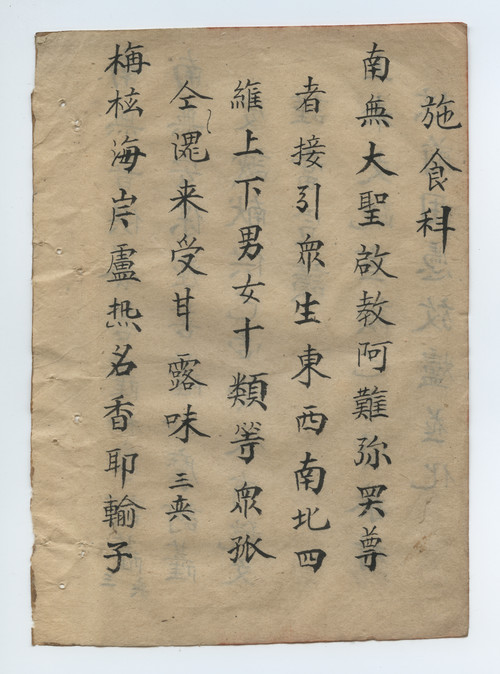 施食科
南無大聖啟教阿難弥尊
者接引眾生東西南北四
維上下男女十類等眾孤
仝来受甘露味三
海岸盧热名香耶輸子